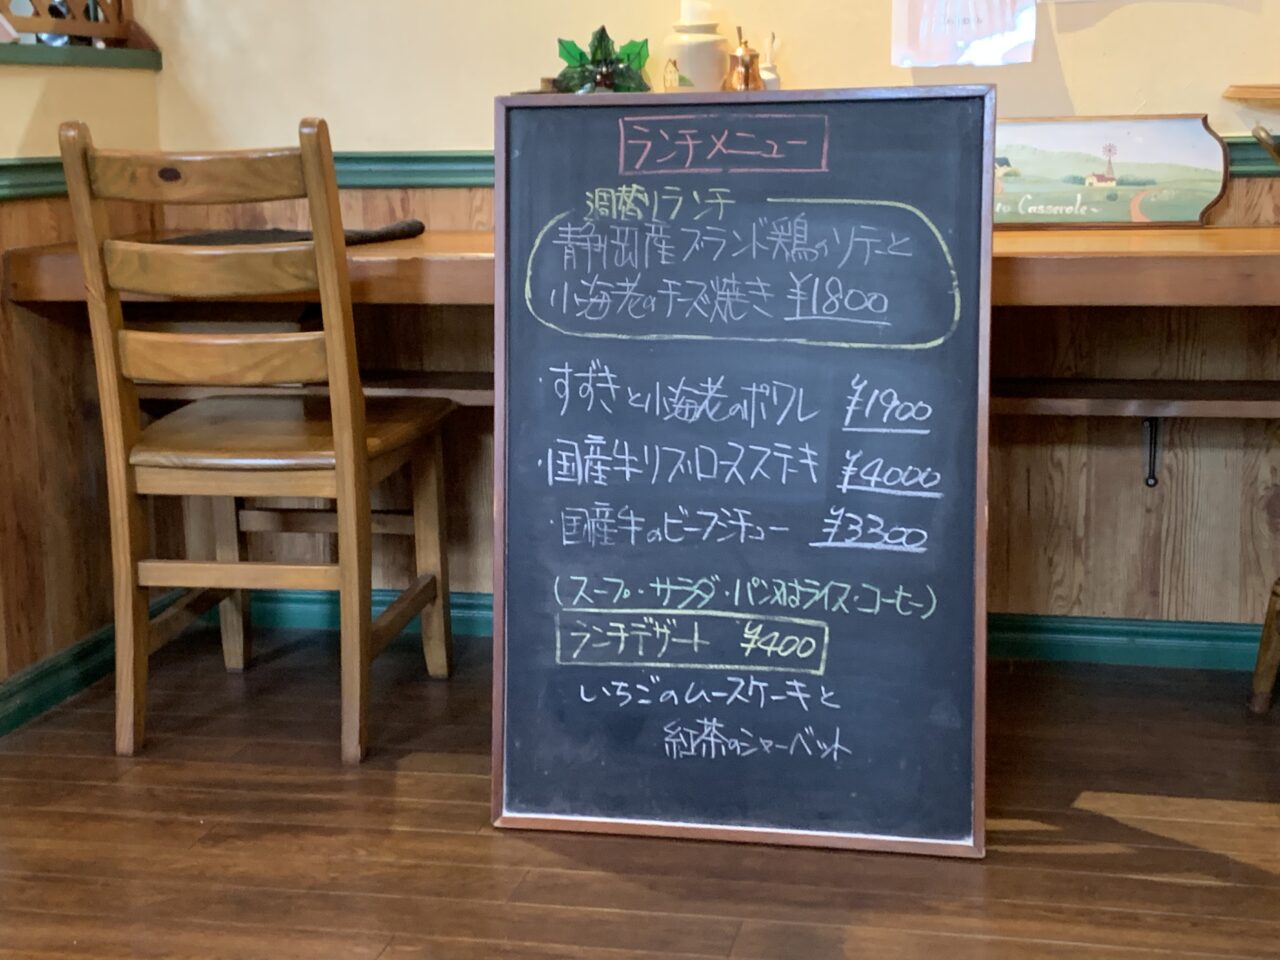 ランチメニュー
週替りランチ
静岡産ブランド鶏のソテーと
小海老のチーズ焼き ¥1800
・すずきと小海老のポワレ ¥1900
・国産牛リブロースステーキ ¥4000
・国産牛のビーフシチュー ¥3300
(スープ・サラダ・パン又はライス・コーヒー)
ランチデザート ¥400
いちごのムースケーキと
紅茶のシャーベット
Casserole